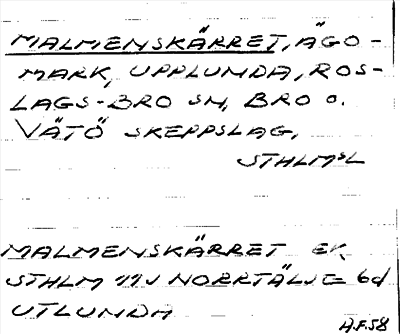 MALMENSKÄRRET, ÄGO-
MARK, UPPLUNDA, ROS-
LAGS-BRO SN, BRO O.
VÄTÖ SKEPPSLAG,
STHLMSL
MALMENSKÄRRET EK.
STHLM 11J NORRTÄLJE 6d
UTLUNDA
A.F.58